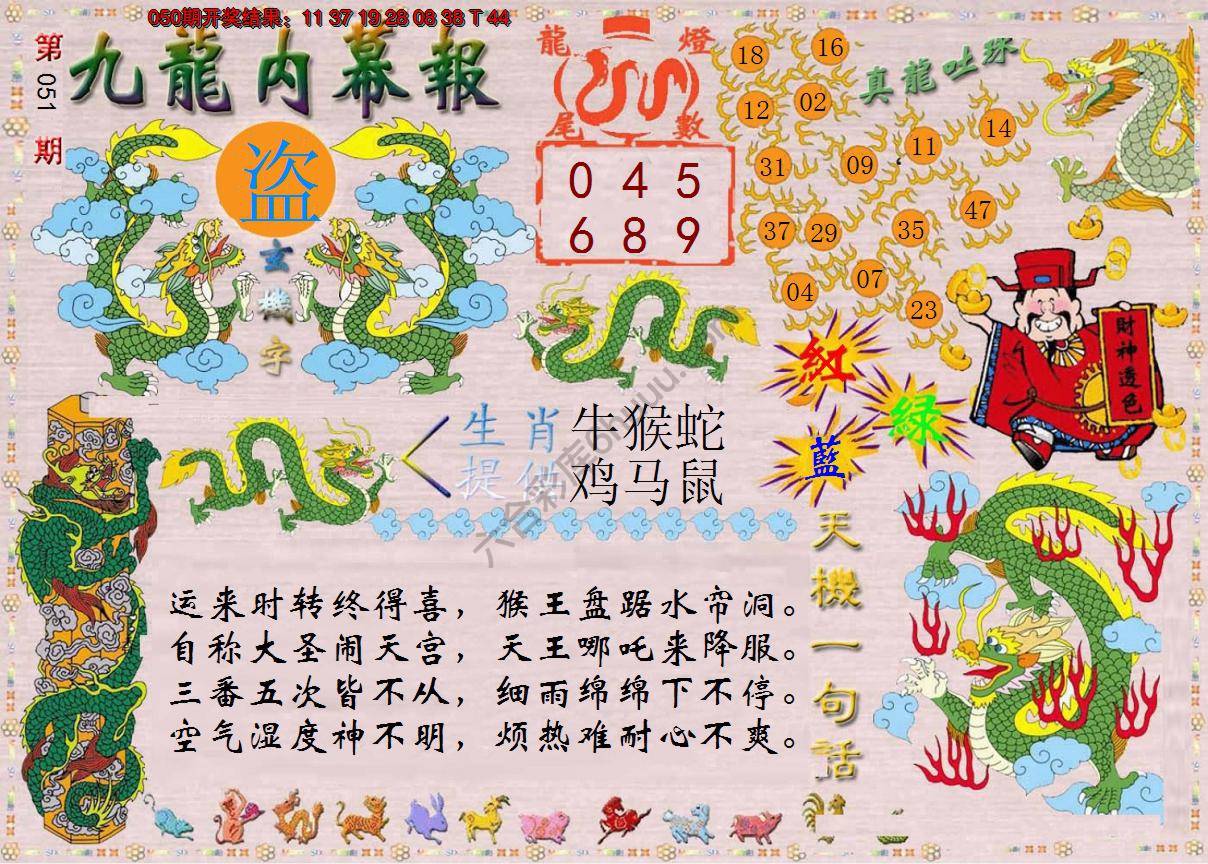 050期开奖结果：11 37 19 28 08 38 T 44
第051期
九龍内幕報
龍燈
尾數
0 4 5
6 8 9
真龍吐珠
18 16
12 02
31 09 11 14
37 29 35 47
04 07 23
盗
玄機字
財神透色
紅
綠
藍
生肖 牛猴蛇
提供 鸡马鼠
天機一句話
运来时转终得喜，猴王盘踞水帘洞。
自称大圣闹天宫，天王哪吒来降服。
三番五次皆不从，细雨绵绵下不停。
空气湿度神不明，烦热难耐心不爽。